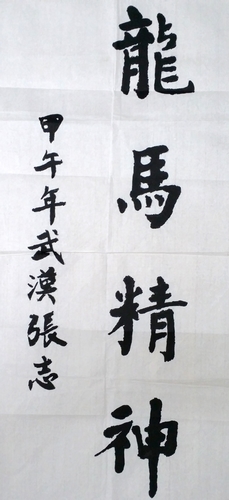 龍馬精神
甲午年武漢張志